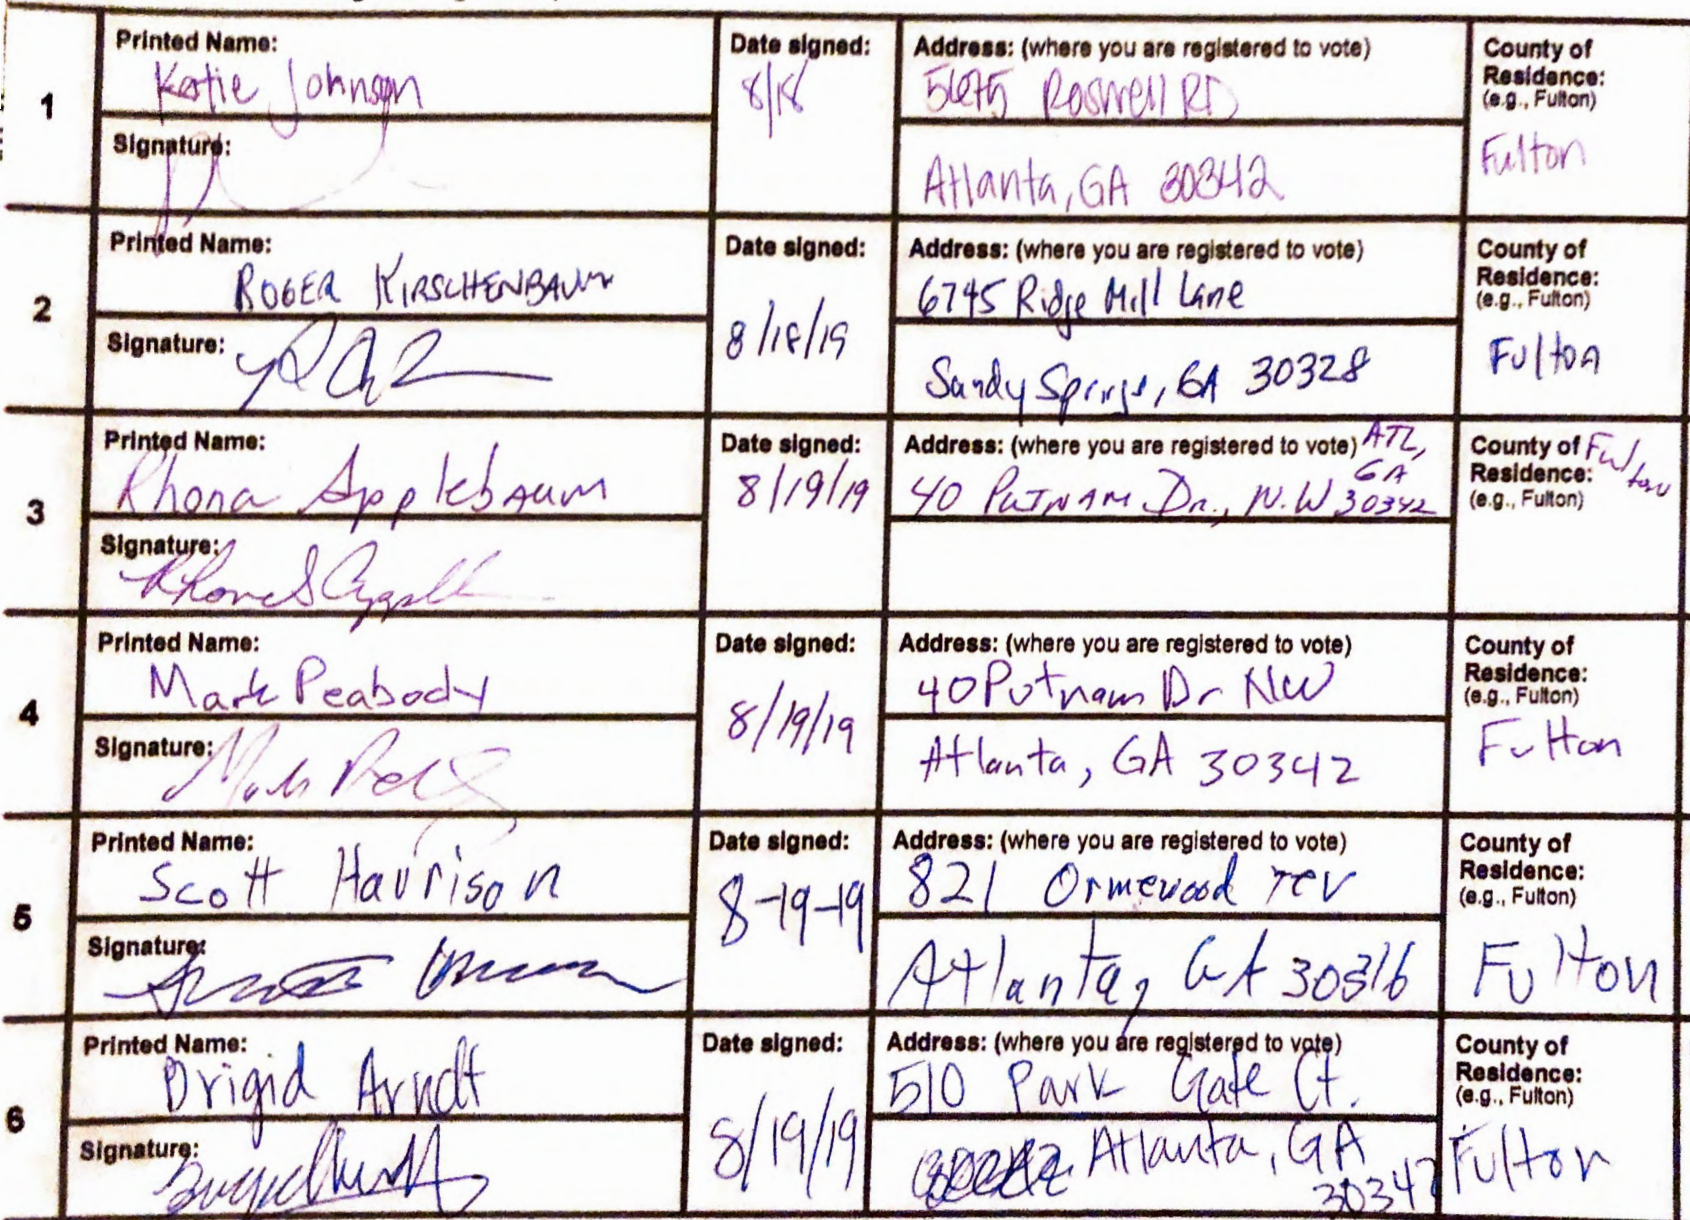 1
Printed Name:
Katie Johnson
Date signed:
8/18
Address: (where you are registered to vote)
5675 Roswell RD
Atlanta, GA 30342
County of
Residence:
(e.g., Fulton)
Fulton
Signature:
2
Printed Name:
ROGER KIRSCHENBAUM
Date signed:
8/18/19
Address: (where you are registered to vote)
6745 Ridge Mill Lane
Sandy Springs, GA 30328
County of
Residence:
(e.g., Fulton)
Fulton
Signature:
3
Printed Name:
Rhona Applebaum
Date signed:
8/19/19
Address: (where you are registered to vote)
ATL,
GA
40 PUTNAM Dr., N.W 30342
County of
Residence:
(e.g., Fulton)
Fulton
Signature:
4
Printed Name:
Mark Peabody
Date signed:
8/19/19
Address: (where you are registered to vote)
40 Putnam Dr NW
Atlanta, GA 30342
County of
Residence:
(e.g., Fulton)
Fulton
Signature:
5
Printed Name:
Scott Harrison
Date signed:
8-19-19
Address: (where you are registered to vote)
821 Ormewood Ter
Atlanta, GA 30316
County of
Residence:
(e.g., Fulton)
Fulton
Signature:
6
Printed Name:
Brigid Arndt
Date signed:
8/19/19
Address: (where you are registered to vote)
510 Park Gate Ct.
Atlanta, GA
30342
County of
Residence:
(e.g., Fulton)
Fulton
Signature: